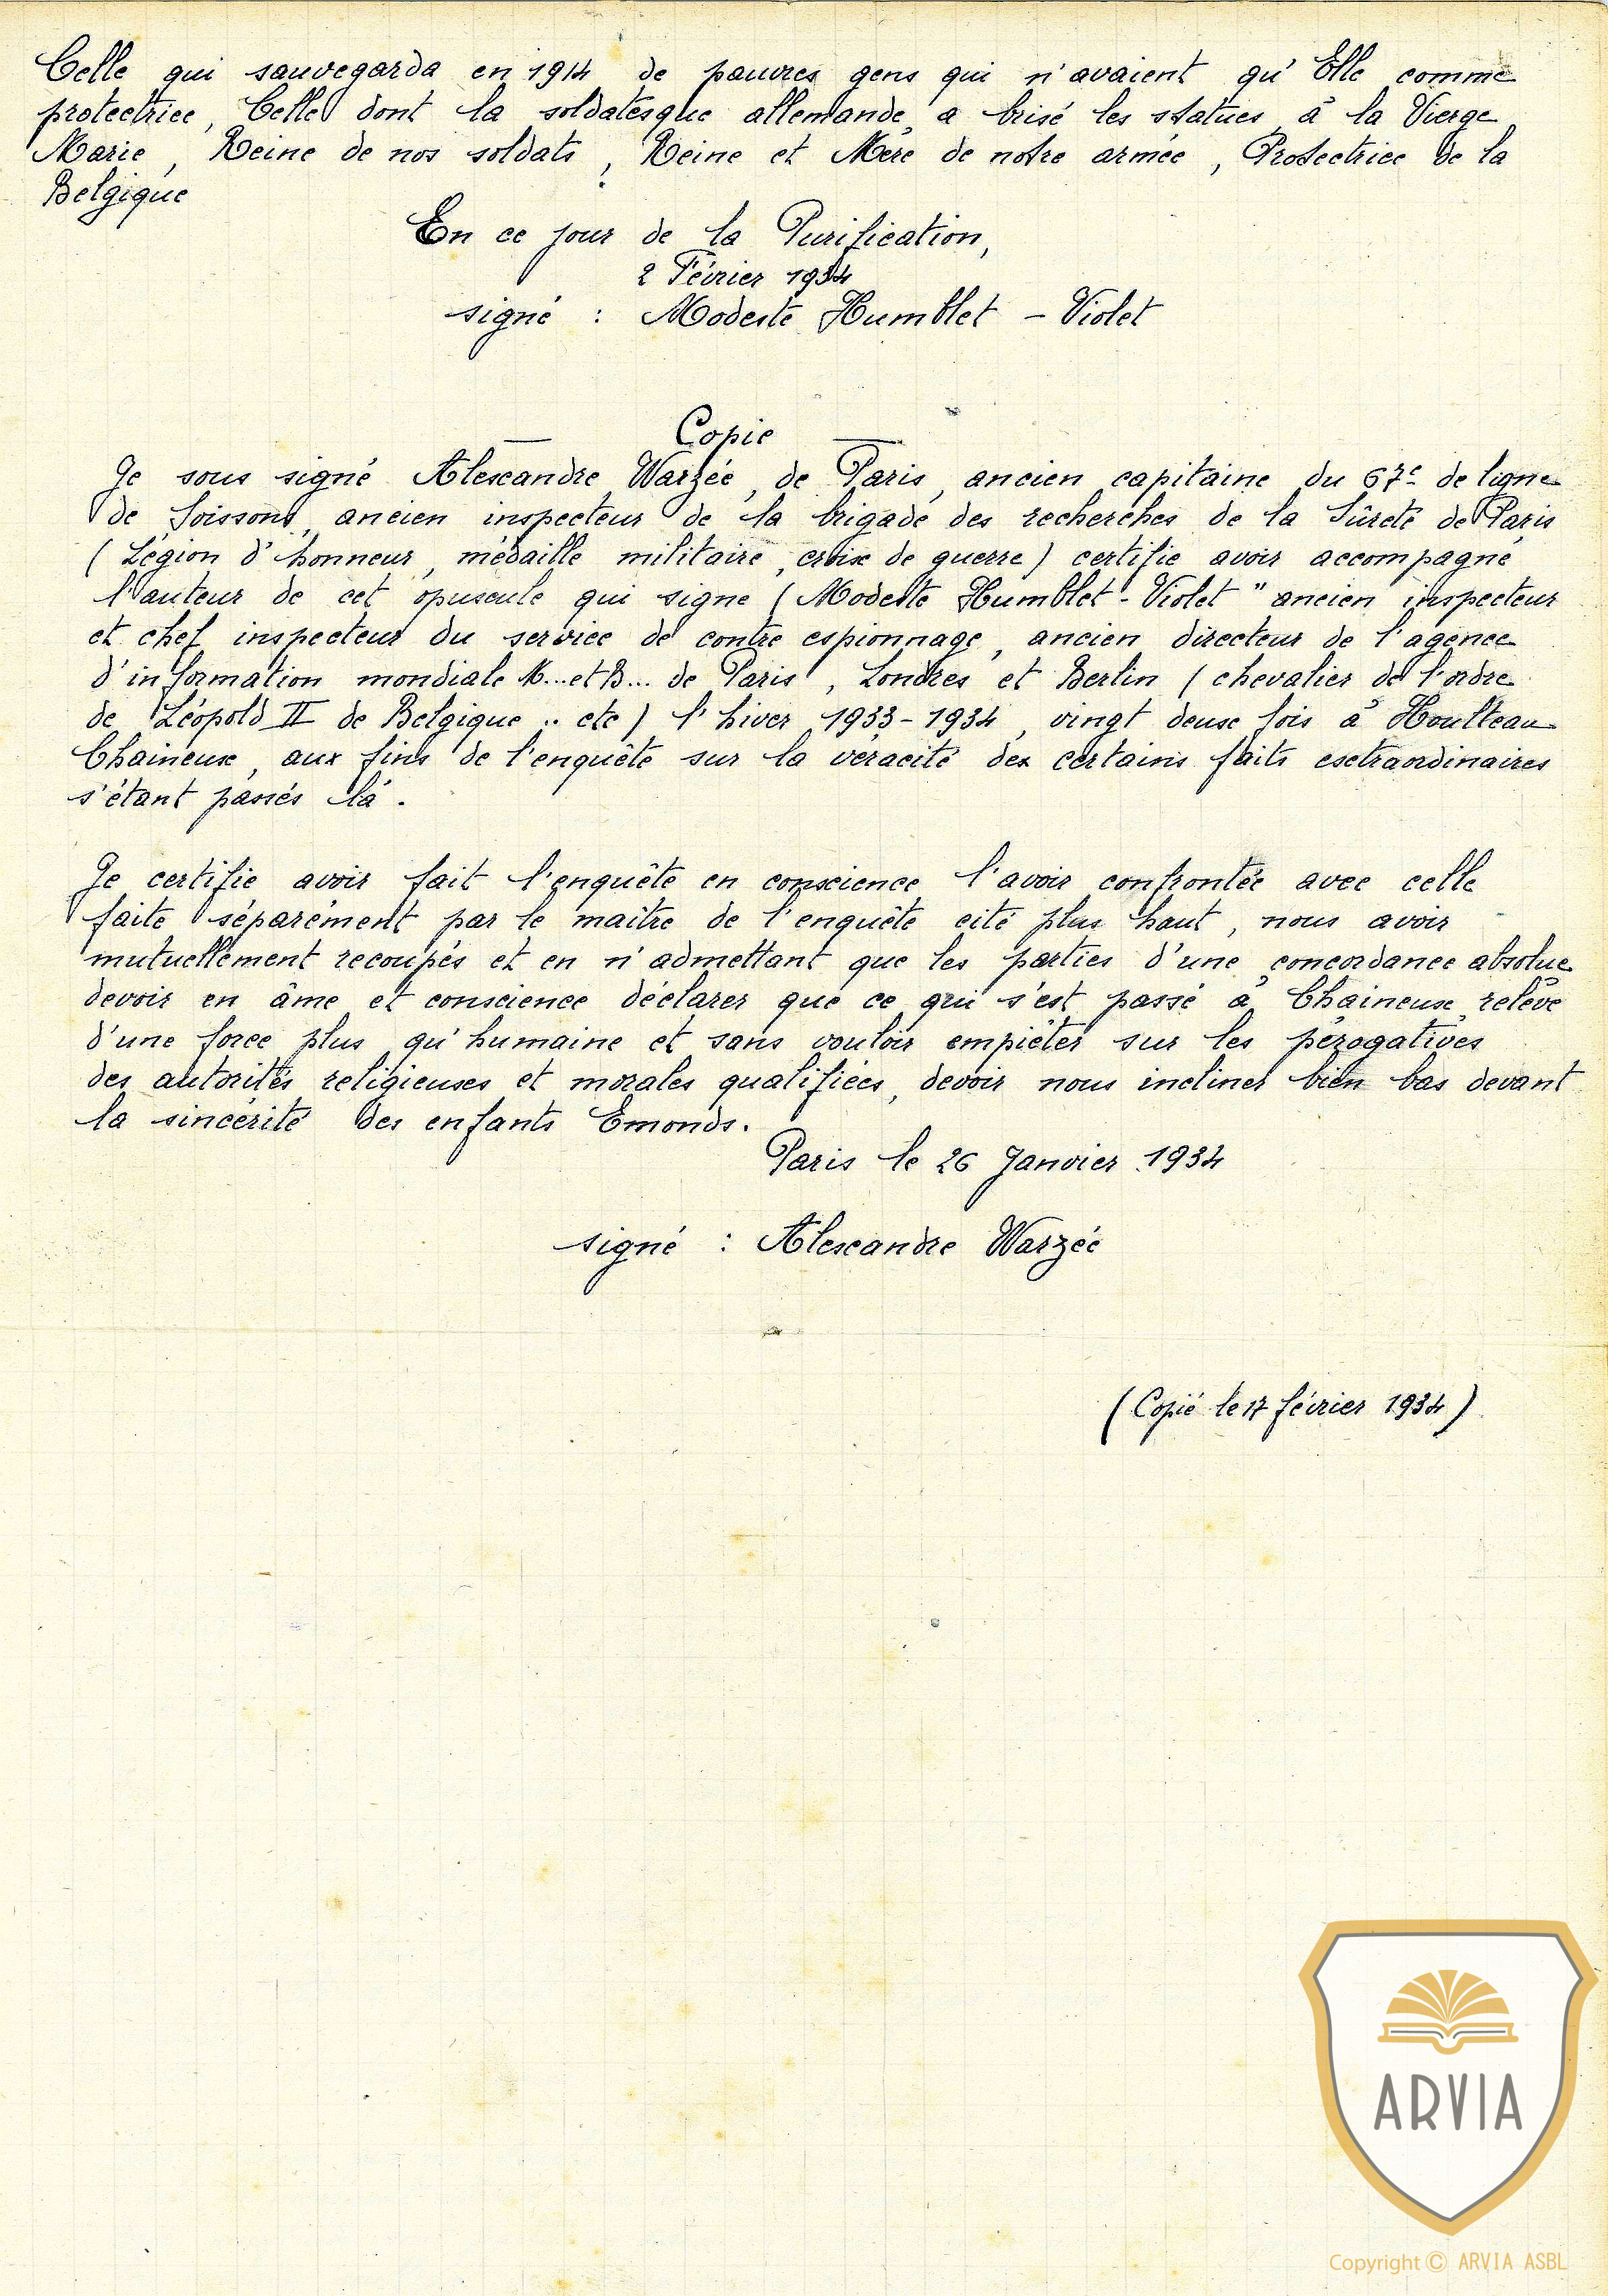 Celle qui sauvegarda en 1914 de pauvres gens qui n'avaient qu'Elle comme
protectrice, Celle dont la soldatesque allemande a brisé les statues, à la Vierge
Marie, Reine de nos soldats, Reine et Mère de notre armée, Protectrice de la
Belgique
En ce jour de la Purification,
2 Février 1934
signé : Modeste Humblet - Violet
Copie
Je sous signé Alexandre Warzée, de Paris, ancien capitaine du 67e de ligne
de Soissons, ancien inspecteur de la brigade des recherches de la Sûreté de Paris
( Légion d'honneur, médaille militaire, croix de guerre) certifie avoir accompagné
l'auteur de cet opuscule qui signe ( Modeste Humblet - Violet " ancien inspecteur
et chef inspecteur du service de contre espionnage, ancien directeur de l'agence
d'information mondiale M...et B... de Paris, Londres et Berlin ( chevalier de l'ordre
de Léopold II de Belgique .. etc ) l'hiver 1933-1934, vingt deux fois à Houlteau
Chaineux, aux fins de l'enquête sur la véracité des certains faits extraordinaires
s'étant passés là.
Je certifie avoir fait l'enquête en conscience l'avoir confrontée avec celle
faite séparément par le maître de l'enquête cité plus haut, nous avoir
mutuellement recoupés et en n'admettant que les parties d'une concordance absolue
devoir en âme et conscience déclarer que ce qui s'est passé à Chaineux, relève
d'une force plus qu'humaine et sans vouloir empiéter sur les pérogatives
des autorités religieuses et morales qualifiées, devoir nous incliner bien bas devant
la sincérité des enfants Emonds.
Paris le 26 Janvier 1934
signé : Alexandre Warzée
(Copié le 17 février 1934)
ARVIA
Copyright © ARVIA ASBL